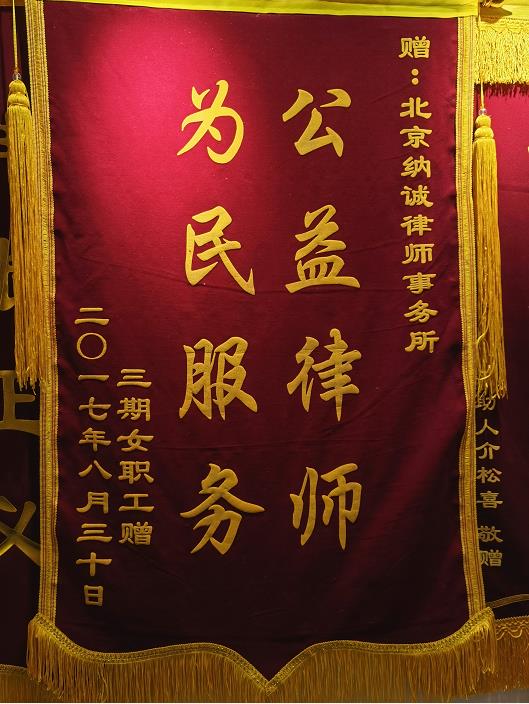 赠：北京纳诚律师事务所
公益律师
为民服务
三期女职工赠
二〇一七年八月三十日
人介松喜 敬赠
正义